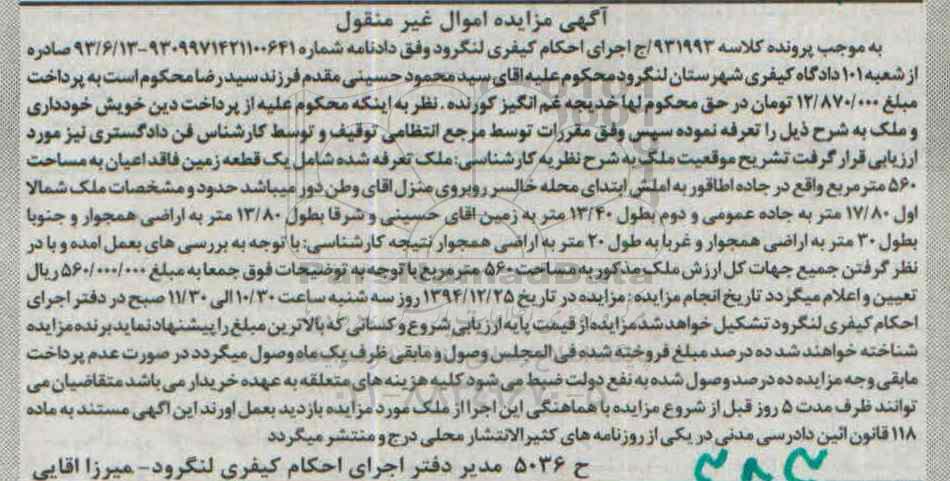 آگهی مزایده اموال غیر منقول
به موجب پرونده کلاسه ۹۳۱۹۹۳/ج اجرای احکام کیفری لنگرود وفق دادنامه شماره ۹۳۰۹۹۷۱۴۲۱۱۰۰۶۴۱-۹۳/۶/۱۳ صادره
از شعبه ۱۰۱ دادگاه کیفری شهرستان لنگرود محکوم علیه اقای سید محمود حسینی مقدم فرزند سید رضا محکوم است به پرداخت
مبلغ ۱۲/۸۷۰/۰۰۰ تومان در حق محکوم لها خدیجه غم انگیز کورنده . نظر به اینکه محکوم علیه از پرداخت دین خویش خودداری
و ملک به شرح ذیل را تعرفه نموده سپس وفق مقررات توسط مرجع انتظامی توقیف و توسط کارشناس فن دادگستری نیز مورد
ارزیابی قرار گرفت تشریح موقعیت ملک به شرح نظریه کارشناسی: ملک تعرفه شده شامل یک قطعه زمین فاقد اعیان به مساحت
۵۶۰ متر مربع واقع در جاده اطاقور به املش ابتدای محله خالسر روبروی منزل اقای وطن دور میباشد حدود و مشخصات ملک شمالا
اول ۱۷/۸۰ متر به جاده عمومی و دوم بطول ۱۳/۴۰ متر به زمین اقای حسینی و شرقا بطول ۱۳/۸۰ متر به اراضی همجوار و جنوبا
بطول ۳۰ متر به اراضی همجوار و غربا به طول ۲۰ متر به اراضی همجوار نتیجه کارشناسی: با توجه به بررسی های بعمل امده و با در
نظر گرفتن جمیع جهات کل ارزش ملک مذکور به مساحت ۵۶۰ متر مربع با توجه به توضیحات فوق جمعا به مبلغ ۵۶۰/۰۰۰/۰۰۰ ریال
تعیین و اعلام میگردد تاریخ انجام مزایده : مزایده در تاریخ ۱۳۹۴/۱۲/۲۵ روز سه شنبه ساعت ۱۰/۳۰ الی ۱۱/۳۰ صبح در دفتر اجرای
احکام کیفری لنگرود تشکیل خواهد شد مزایده از قیمت پایه ارزیابی شروع و کسانی که بالاترین مبلغ را پیشنهاد نماید برنده مزایده
شناخته خواهند شد ده درصد مبلغ فروخته شده فی المجلس وصول و مابقی ظرف یک ماه وصول میگردد در صورت عدم پرداخت
مابقی وجه مزایده ده درصد وصول شده به نفع دولت ضبط می شود کلیه هزینه های متعلقه به عهده خریدار می باشد متقاضیان می
توانند ظرف مدت ۵ روز قبل از شروع مزایده با هماهنگی این اجرا از ملک مورد مزایده بازدید بعمل اورند این اگهی مستند به ماده
۱۱۸ قانون ائین دادرسی مدنی در یکی از روزنامه های کثیرالانتشار محلی درج و منتشر میگردد
ح ۵۰۳۶ مدیر دفتر اجرای احکام کیفری لنگرود- میرزا اقایی